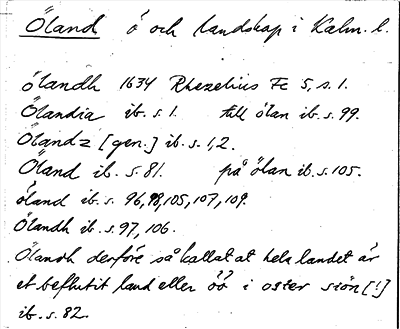 Öland ö och landskap i Kalm. l.
ölandh 1634 Rhezelius Fc 5, s. 1.
Ölandia ib. s. 1. till ölan ib. s. 99.
Ölandz [gen.] ib. s. 1, 2.
Öland ib. s. 81. på ölan ib. s. 105.
öland ib. s. 96, 98, 105, 107, 109.
Ölandh ib. s. 97, 106.
Ölandh derföre så kallat at hela landet är
et beflutit land eller öö i oster siön [!]
ib. s. 82.